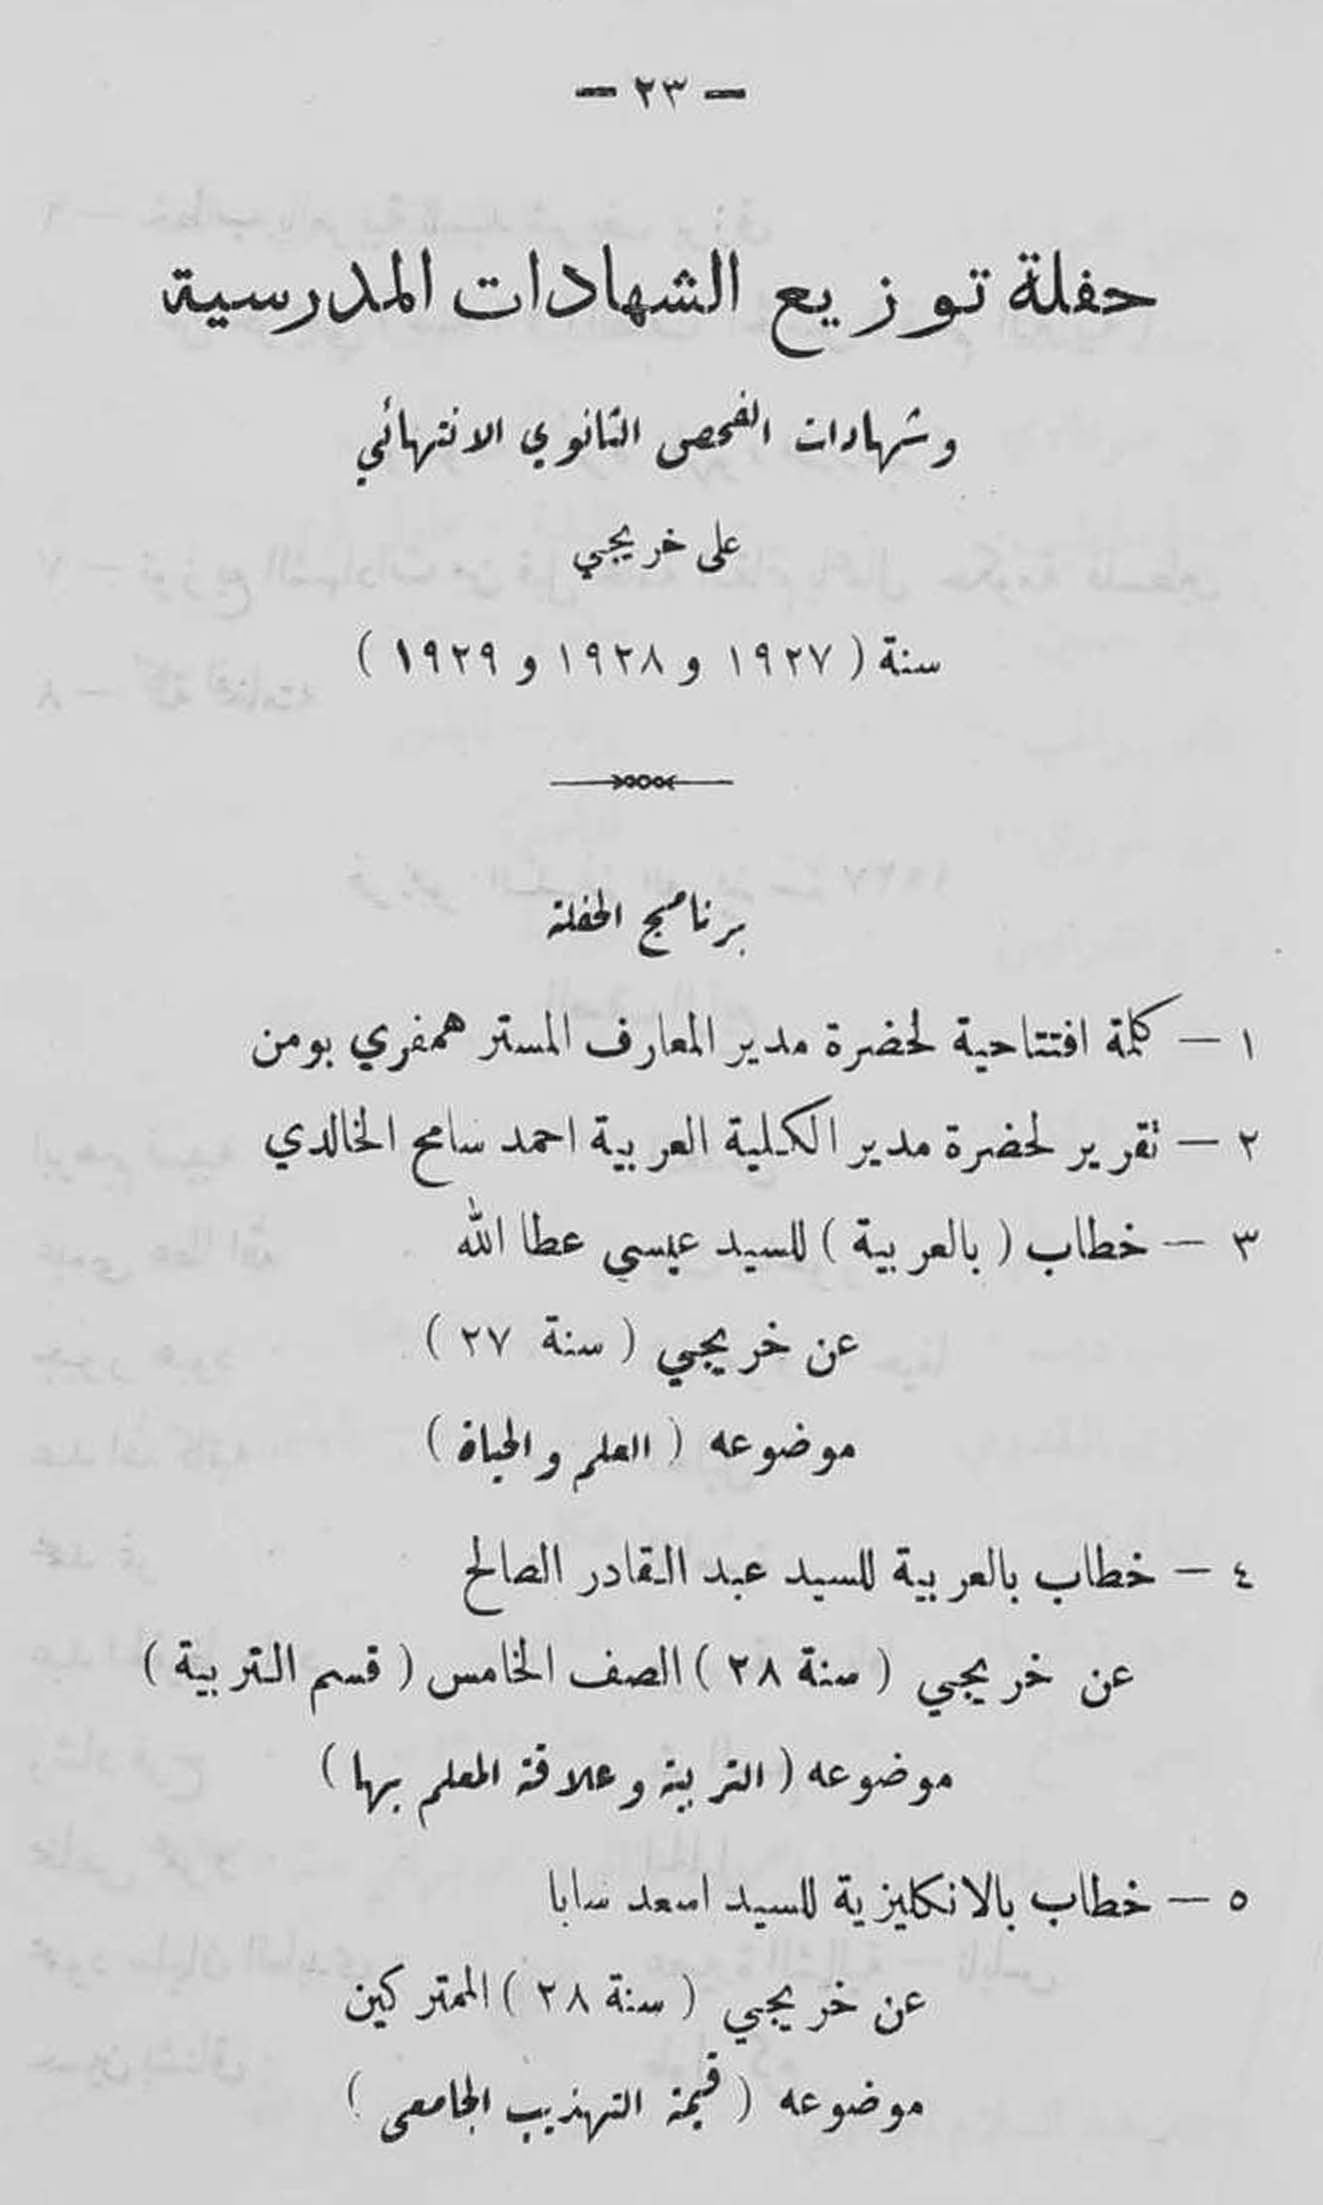 — ٢٣ —
حفلة توزيع الشهادات المدرسية
وشهادات الفحص الثانوي الانتهائي
على خريجي
سنة ( ١٩٢٧ و ١٩٢٨ و ١٩٢٩ )
برنامج الحفلة
١ — كلمة افتتاحية لحضرة مدير المعارف المستر همفري بومن
٢ — تقرير لحضرة مدير الكلية العربية احمد سامح الخالدي
٣ — خطاب ( بالعربية ) للسيد عيسى عطا الله
عن خريجي ( سنة ٢٧ )
موضوعه ( العلم والحياة )
٤ — خطاب بالعربية للسيد عبد القادر الصالح
عن خريجي ( سنة ٢٨ ) الصف الخامس ( قسم التربية )
موضوعه ( التربية وعلاقة المعلم بها )
٥ — خطاب بالانكليزية للسيد اسعد سابا
عن خريجي ( سنة ٢٨ ) المتركين
موضوعه ( قيمة التهذيب الجامعي )